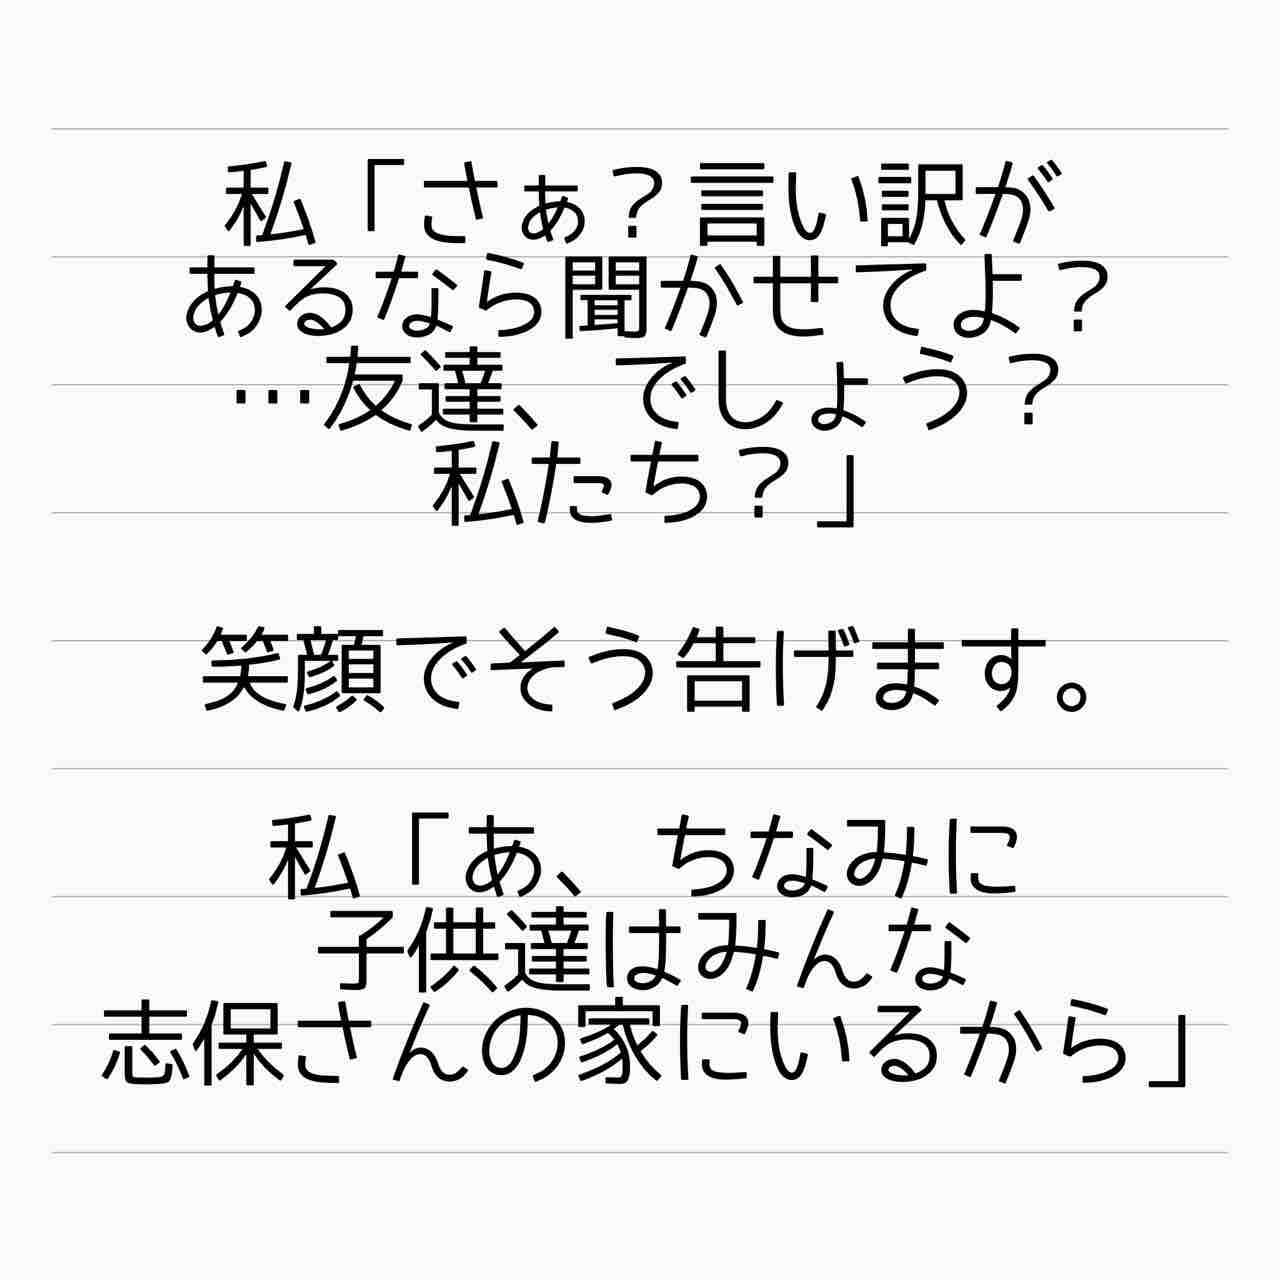 私「さぁ？言い訳が
あるなら聞かせてよ？
…友達、でしょう？
私たち？」
笑顔でそう告げます。
私「あ、ちなみに
子供達はみんな
志保さんの家にいるから」